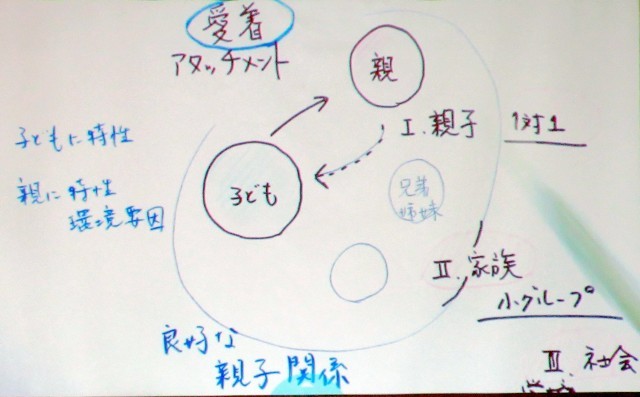 愛着
アタッチメント
親
I. 親子 1対1
子どもに特性
親に特性
環境要因
子ども
兄弟
姉妹
II. 家族
小グループ
良好な
親子関係
III. 社会